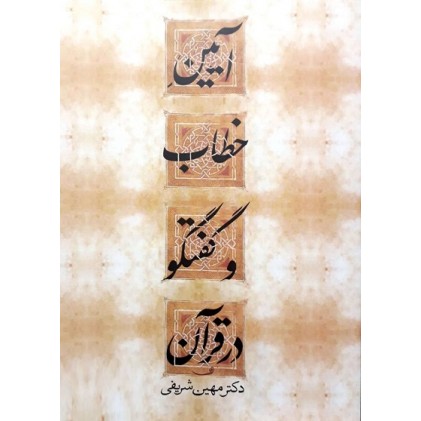 آیینِ
خطاب
و گفتگو
در قرآن
دکتر مهین شریفی